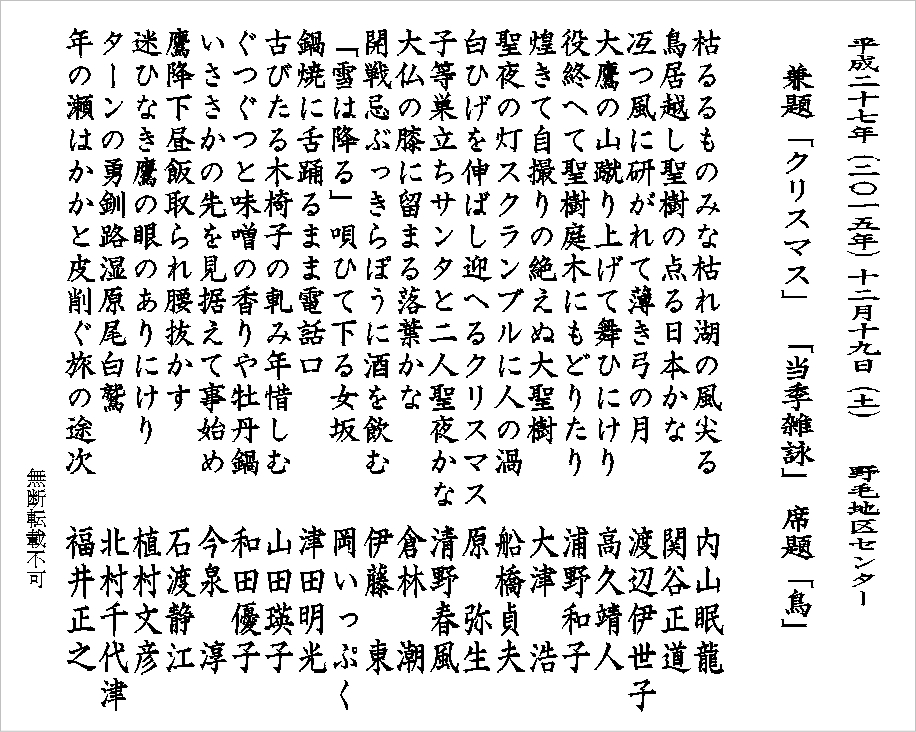 平成二十七年(二〇一五年)十二月十九日(土) 野毛地区センター
兼題「クリスマス」「当季雑詠」席題「鳥」
枯るるものみな枯れ湖の風尖る 内山眠龍
鳥居越し聖樹の点る日本かな 関谷正道
冱つ風に研がれて薄き弓の月 渡辺伊世子
大鷹の山蹴り上げて舞ひにけり 高久靖人
役終へて聖樹庭木にもどりたり 浦野和子
煌きて自撮りの絶えぬ大聖樹 大津浩
聖夜の灯スクランブルに人の渦 船橋貞夫
白ひげを伸ばし迎へるクリスマス 原弥生
子等巣立ちサンタと二人聖夜かな 清野春風
大仏の膝に留まる落葉かな 倉林潮
開戦忌ぶっきらぼうに酒を飲む 伊藤東
「雪は降る」唄ひて下る女坂 岡いっぷく
鍋焼に舌踊るまま電話口 津田明光
古びたる木椅子の軋み年惜しむ 山田瑛子
ぐつぐつと味噌の香りや牡丹鍋 和田優子
いささかの先を見据えて事始め 今泉淳
鷹降下昼飯取られ腰抜かす 石渡静江
迷ひなき鷹の眼のありにけり 植村文彦
ターンの勇釧路湿原尾白鷲 北村千代津
年の瀬はかかと皮削ぐ旅の途次 福井正之
無断転載不可